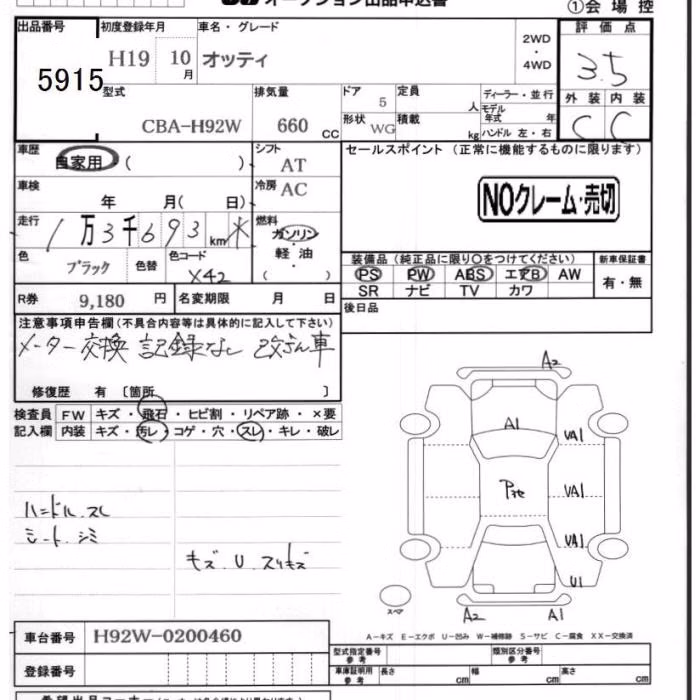 オークション出品申込書 ①会場控
出品番号 初度登録年月 車名・グレード 評価点
5915 H19 10月 オッティ 2WD・4WD 3.5
型式 排気量 ドア 5 定員 人 ディーラー・並行 外装 内装
CBA-H92W 660 CC 形状 WG 積載 kg モデル年式 年 ハンドル 左・右 C C
車歴 自家用 ( ) シフト AT セールスポイント (正常に機能するものに限ります)
車検 年 月( 日) 冷房 AC NOクレーム・売切
走行 1万3千693km* 燃料 ガソリン・軽油 ( )
色 ブラック 色替 色コード X42
装備品 (純正品に限り○をつけてください) 新車保証書
PS PW ABS エアB AW 有・無
SR ナビ TV カワ
R券 9,180 円 名変期限 月 日 後日品
注意事項申告欄(不具合内容等は具体的に記入して下さい)
メーター交換 記録なし 改ざん車
修復歴 有 〔箇所 〕
検査員記入欄 FW キズ・飛石・ヒビ割・リペア跡・×要
内装 キズ・汚レ・コゲ・穴・スレ・キレ・破レ
ハンドル スレ
シート シミ
キズ U スリキズ
A2
A1 UA1
UA1
UA1
U1
スペア
A2 A1
A-キズ E-エクボ U-凹み W-補修跡 S-サビ C-腐食 XX-交換済
車台番号 H92W-0200460
登録番号
型式指定番号 参考 類別区分番号 参考
車庫証明用 参考 長さ cm 幅 cm 高さ cm